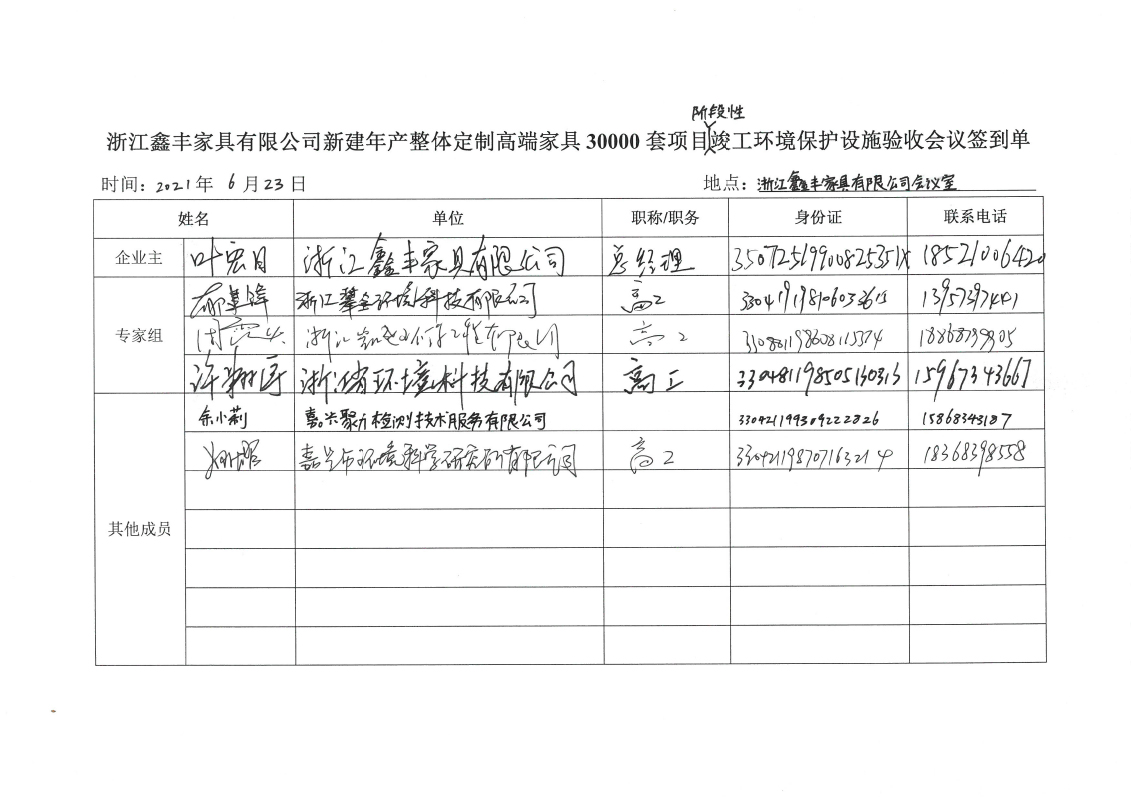 阶段性
浙江鑫丰家具有限公司新建年产整体定制高端家具 30000 套项目竣工环境保护设施验收会议签到单
时间：2021年 6 月 23 日 地点：浙江鑫丰家具有限公司会议室
姓名 单位 职称/职务 身份证 联系电话
企业主 叶宏月 浙江鑫丰家具有限公司 总经理 35072519900825351X 18521006420
浙江 环境科技有限公司 高工 13957397441
专家组 浙江 高工
许翔 浙江 环境科技有限公司 高工 330481198505130313 15967343667
余小莉 嘉兴聚力检测技术服务有限公司 330421199309222826 15868343187
嘉兴市环境科学研究所有限公司 高工 330421198707163214 18368398558
其他成员